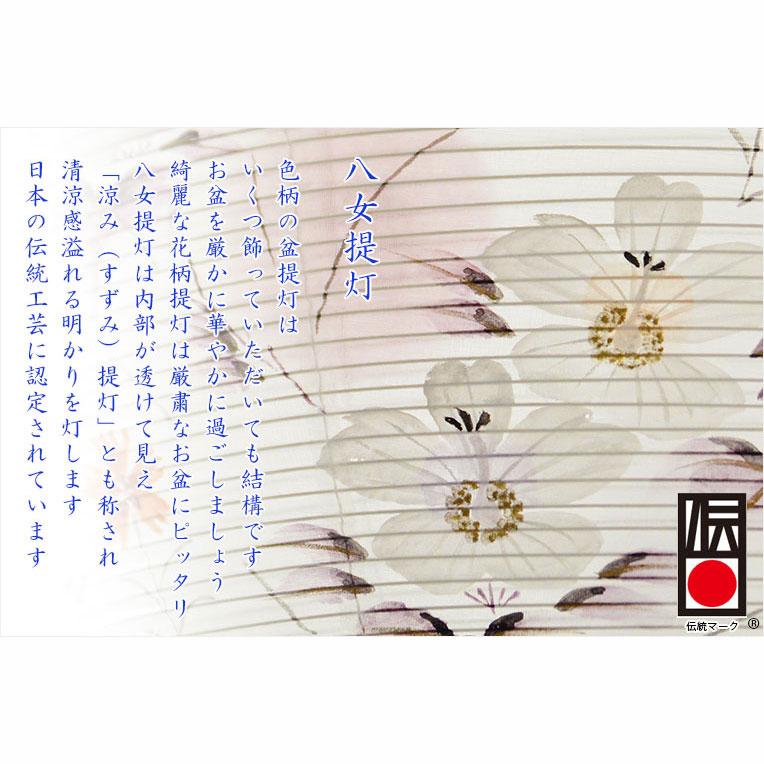 八女提灯
色柄の盆提灯は
いくつ飾っていただいても結構です
お盆を厳かに華やかに過ごしましょう
綺麗な花柄提灯は厳粛なお盆にピッタリ
八女提灯は内部が透けて見え
「涼み（すずみ）提灯」とも称され
清涼感溢れる明かりを灯します
日本の伝統工芸に認定されています
伝
伝統マーク ®